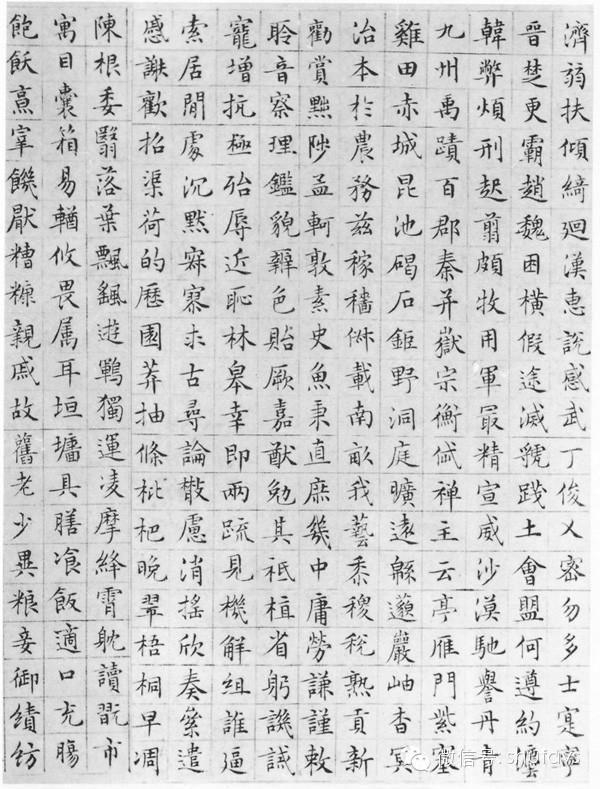 濟弱扶傾綺廻漢惠說感武丁俊乂密勿多士寔寧
晉楚更霸趙魏困橫假途滅虢踐土會盟何遵約灋
韓弊煩刑起翦頗牧用軍冣精宣威沙漠馳譽丹青
九州禹蹟百郡秦并嶽宗衡岱禪主云亭雁門紫塞
雞田赤城昆池碣石鉅野洞庭曠遠緜邈巖岫杳冥
治本於農務茲稼穡俶載南畝我藝黍稷稅熟貢新
勸賞黜陟孟軻敦素史魚秉直庶幾中庸勞謙謹敕
聆音察理鑑貌辨色貽厥嘉猷勉其祗植省躬譏誡
寵增抗極殆辱近恥林皋幸即兩疏見機解組誰逼
索居閒處沉默寂寥求古尋論散慮消搖欣奏累遣
慼謝歡招渠荷的歷園莽抽條枇杷晚翠梧桐早凋
陳根委翳落葉飄颻遊鵾獨運凌摩絳霄耽讀翫市
寓目囊箱易輶攸畏属耳垣墻具膳飡飯適口充腸
飽飫烹宰饑厭糟糠親戚故舊老少異粮妾御績紡
微信号: